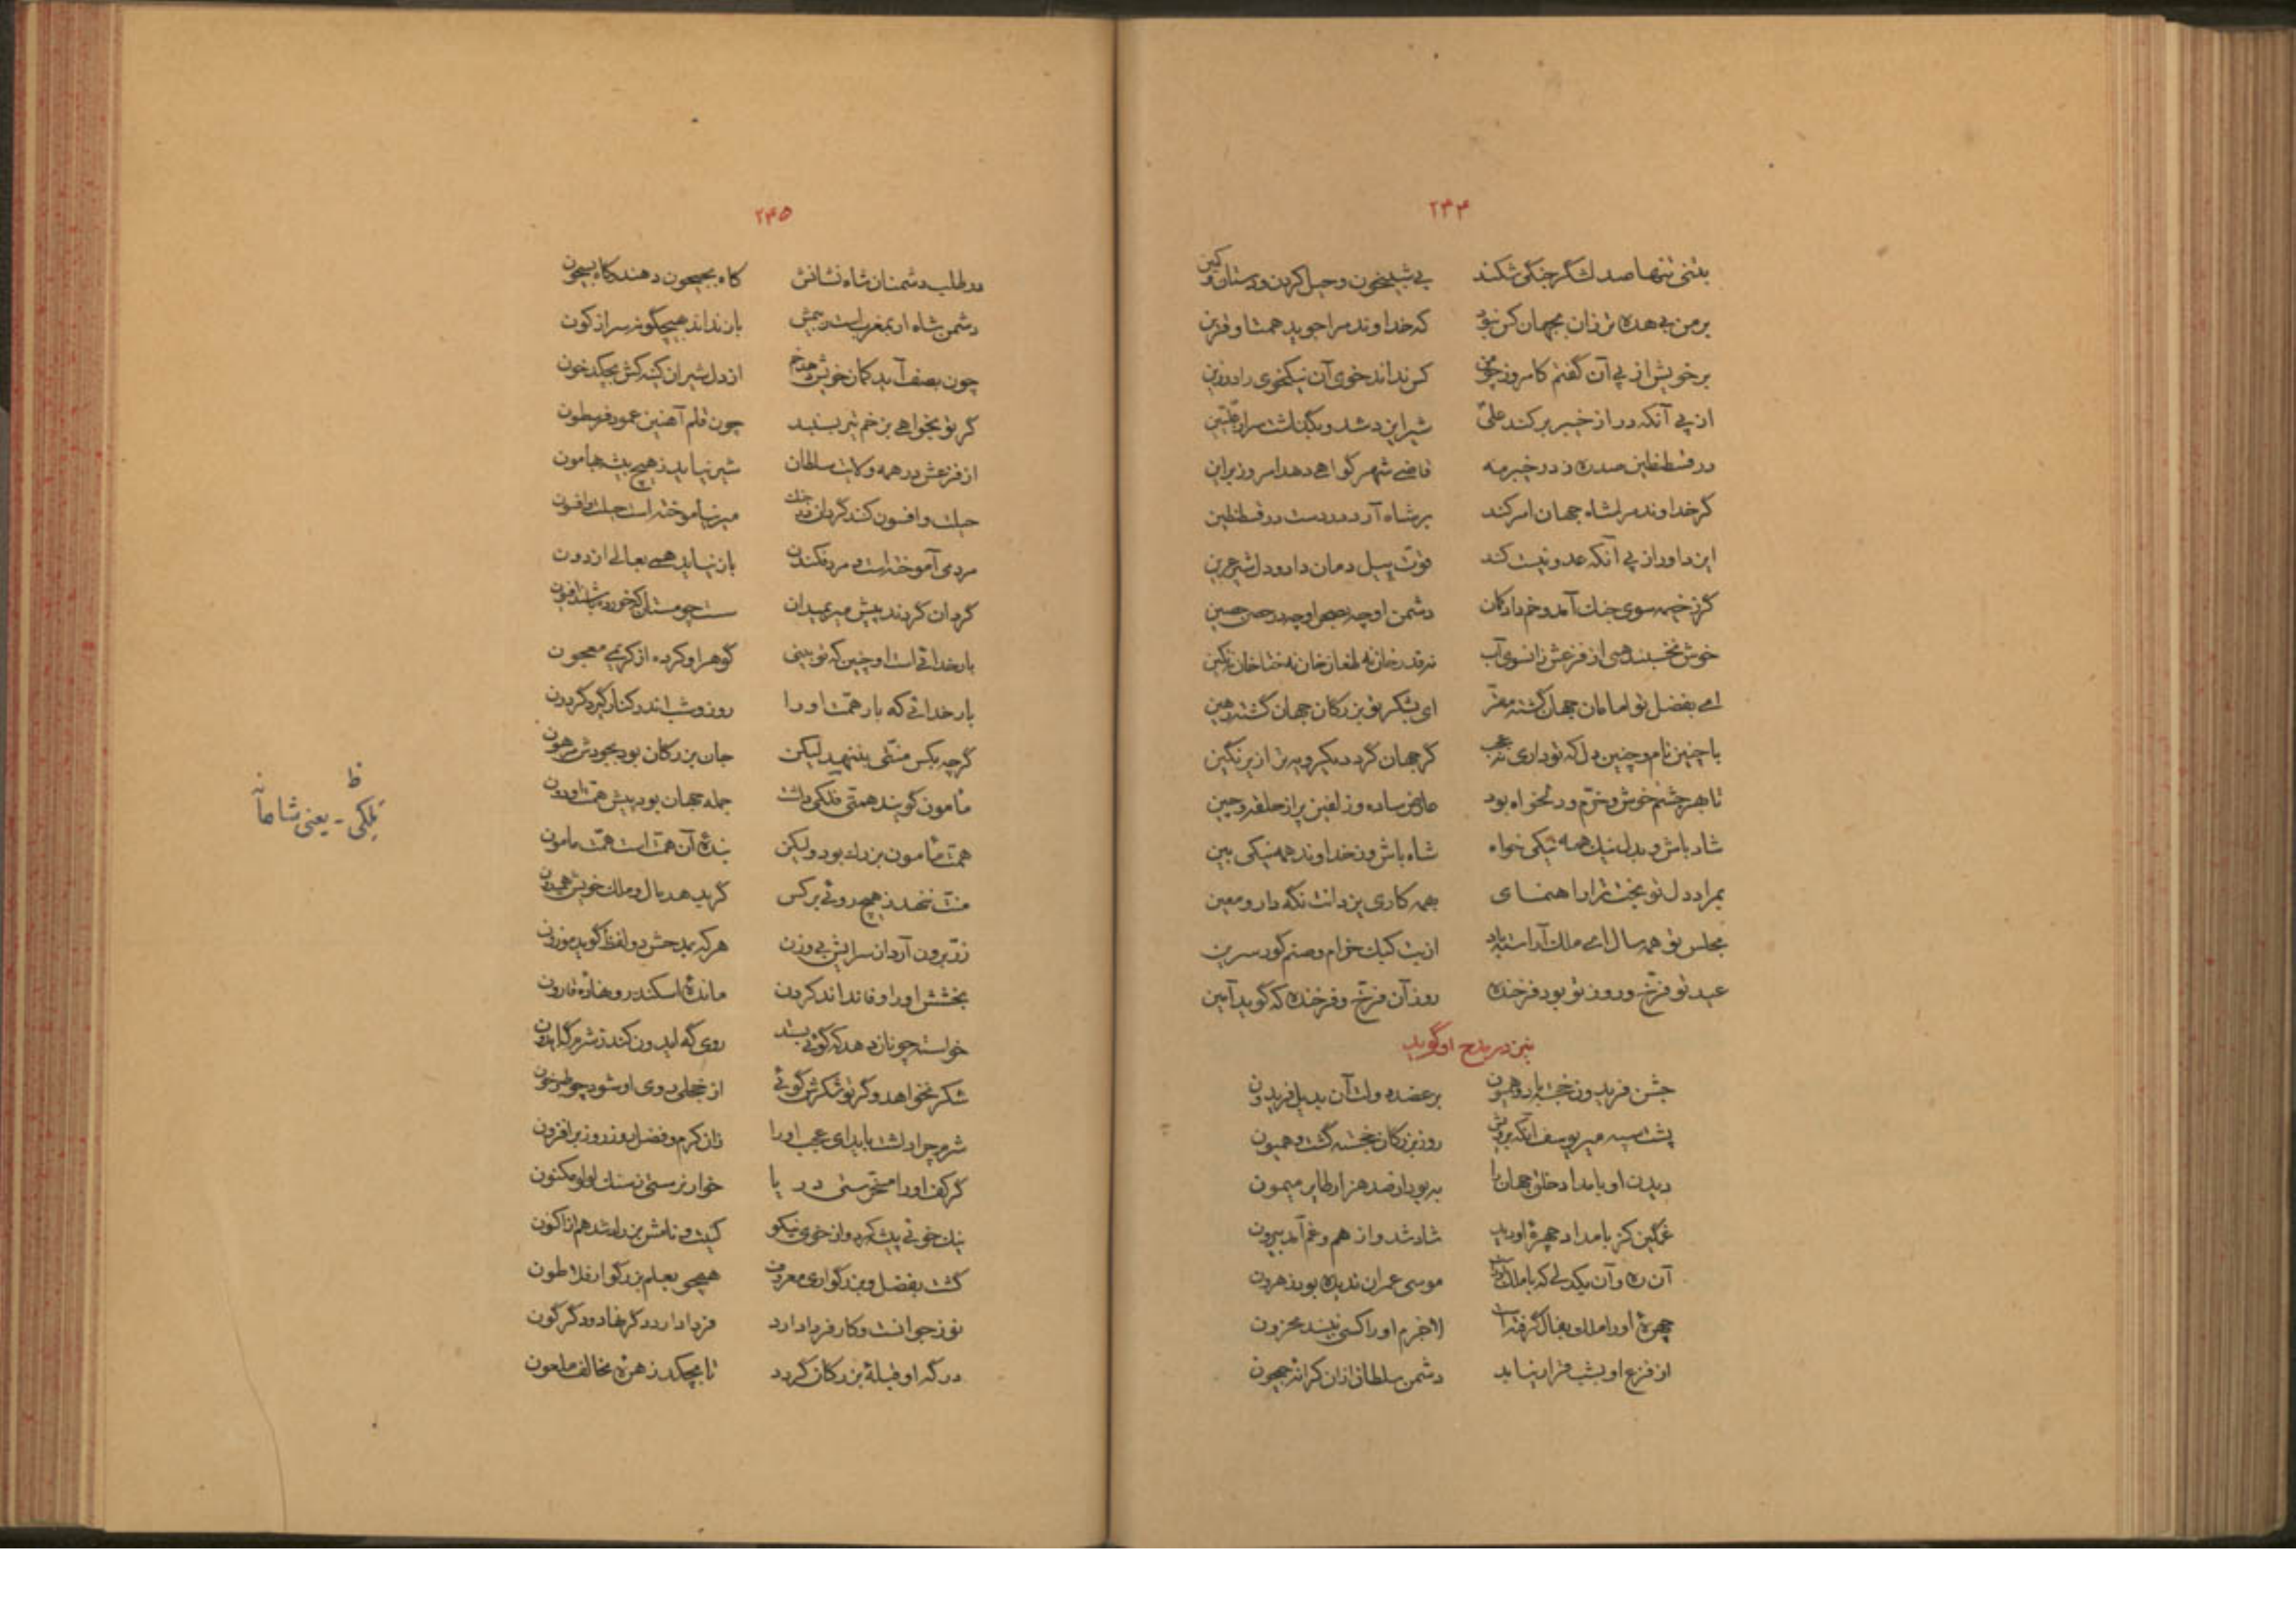 ۲۴۴
بتنی تنها صد لشگر جنگی شکند بی شبیخون و حیل کردن و دستان و کین
بر من بی هده تر زان بجهان کس نبود که خداوند مرا جوید همتا و قرین
بر خویش از پی آن گفتم کامروز چون کس نداند خوی آن نیکخوی راد و زین
از پی آنکه در از خیبر برکند علی شیر ایزد شد و بگذاشت سر از علیین
در قسطنطین صد ره ز در خیبر مه قاضی شهر گواهی دهد امروز براین
گر خداوند مرا شاه جهان امر کند بر شاه آرد در دست در قسطنطین
این داور از پی آنکه عدو نیست کند قوت پیل دمان دارد و دل شیر عرین
گر ز خیمه سوی جنگ آمد و خم داد کمان دشمن او چه بصحرا و چه در حصن حصین
خوش نخسبند همی از فزعش زانسوی آب نه قدر خان نه طغان خان نه ختا خان نه تکین
ای بفضل تو امامان جهان گشته مقر ای بشکر تو بزرگان جهان گشته رهین
با چنین نام و چنین دل که تو داری نه عجب گر جهان گردد یکرویه ترا زیر نگین
تا بهر چشم خوش و خرم و دلخواه بود عارض ساده و زلفین پر از حلقه و چین
شاد باش و بدل نیک همه نیکی خواه شاه باش و ز خداوند همه نیکی بین
بمراد دل تو بخت ترا راهنمای بهمه کاری یزدانت نگه دار و معین
مجلس تو همه سال ای ملک آراسته باد از بت کبک خرام و صنم گور سرین
عید تو فرخ و روز تو بود فرخنده روز آن فرخ و فرخنده که گوید آمین
نیز در مدح او گوید
جشن فریدون خجسته باد و همیون بر عضد دولت آن بدیل فریدون
پشت سپه میر یوسف آنکه برویش روز بزرگان خجسته گشت و همیون
دیدن او بامداد خلق جهان را به بود از صد هزار طایر میمون
غمگین کز بامداد چهره او دید شاد شد و از هم و غم آمد بیرون
آن ره و آن یکدلی که با ملک او راست موسی عمران ندیده بود ز هرون
چهره او را ملک بفال گرفته است لاجرم او را کسی نبیند محزون
از فزع او بشب قرار نیابد دشمن سلطان از آن کرانه جیحون
۲۴۵
در طلب دشمنان شاه نشانش گاه بجیحون دهند گاه بسیحون
دشمن شاه ار بمغرب است ز بیمش باز نداند بهیچگونه سر از کون
چون بصف آید کمان خویش دهد خم از دل شیران کینه کش بچکد خون
گر تو بخواهی بزخم تیر بسنبد چون قلم آهنین عمود فرسطون
از فزعش در همه ولایت سلطان شیر نیاید ز هیچ بیشه بهامون
حیلت و افسون کند گردان در جنگ میر نیاموخته است حیلت و افسون
مردی آموخته است و مرد فکندن باز نیاید همی بعالی از دون
گردان گردند پیش میر بمیدان سست چو مستان که خورده باشند افیون
بار خدائی است او چنین که تو بینی گوهر او کرده از کریمی معجون
بار خدائی که بار همت او را روز و شب اندر کنار گیرد گردون
گرچه بکس منتی بننهد لیکن جان بزرگان بود بجودش مرهون
مامون گویند همتی فلکی داشت جمله جهان بود پیش همت او دون
همت مأمون بزرگ بود ولیکن بنده آن همت است همت مامون
منت ننهد ز هیچ روئی بر کس گر بدهد مال و ملک خویش همیدون
زر برون آرد از سرایش بی وزن هر که بمدحش دو لفظ گوید موزون
بخشش او را وفا نداند کردن مانده اسکندر و نهاده قارون
خواسته چونان دهد که گوئی بستد روی گه ایدون کند ز شرم گه ایدون
شکر نخواهد و گر تو شکرش گوئی از خجلی روی او شود چو طبر خون
شرم چرا داشت باید ای عجب او را زان کرم و فضل روز روز برافزون
گر کف او را مسخرستی دریا خوارترستی ز سنگ لولو مکنون
نیک خوئی پیشه کرد و از خوی نیکو کیست و نامش بزرگ شد هم از اکنون
گشت بفضل و بزرگواری معروف همچو بعلم بزرگوار فلاطون
نوز جوانست و کار فردا دارد فردا دارد دگر نهاد و دگرگون
درگه او قبله بزرگان گردد تا بچکد زهره مخالف ملعون
ظ
تکلی - یعنی شاهانه